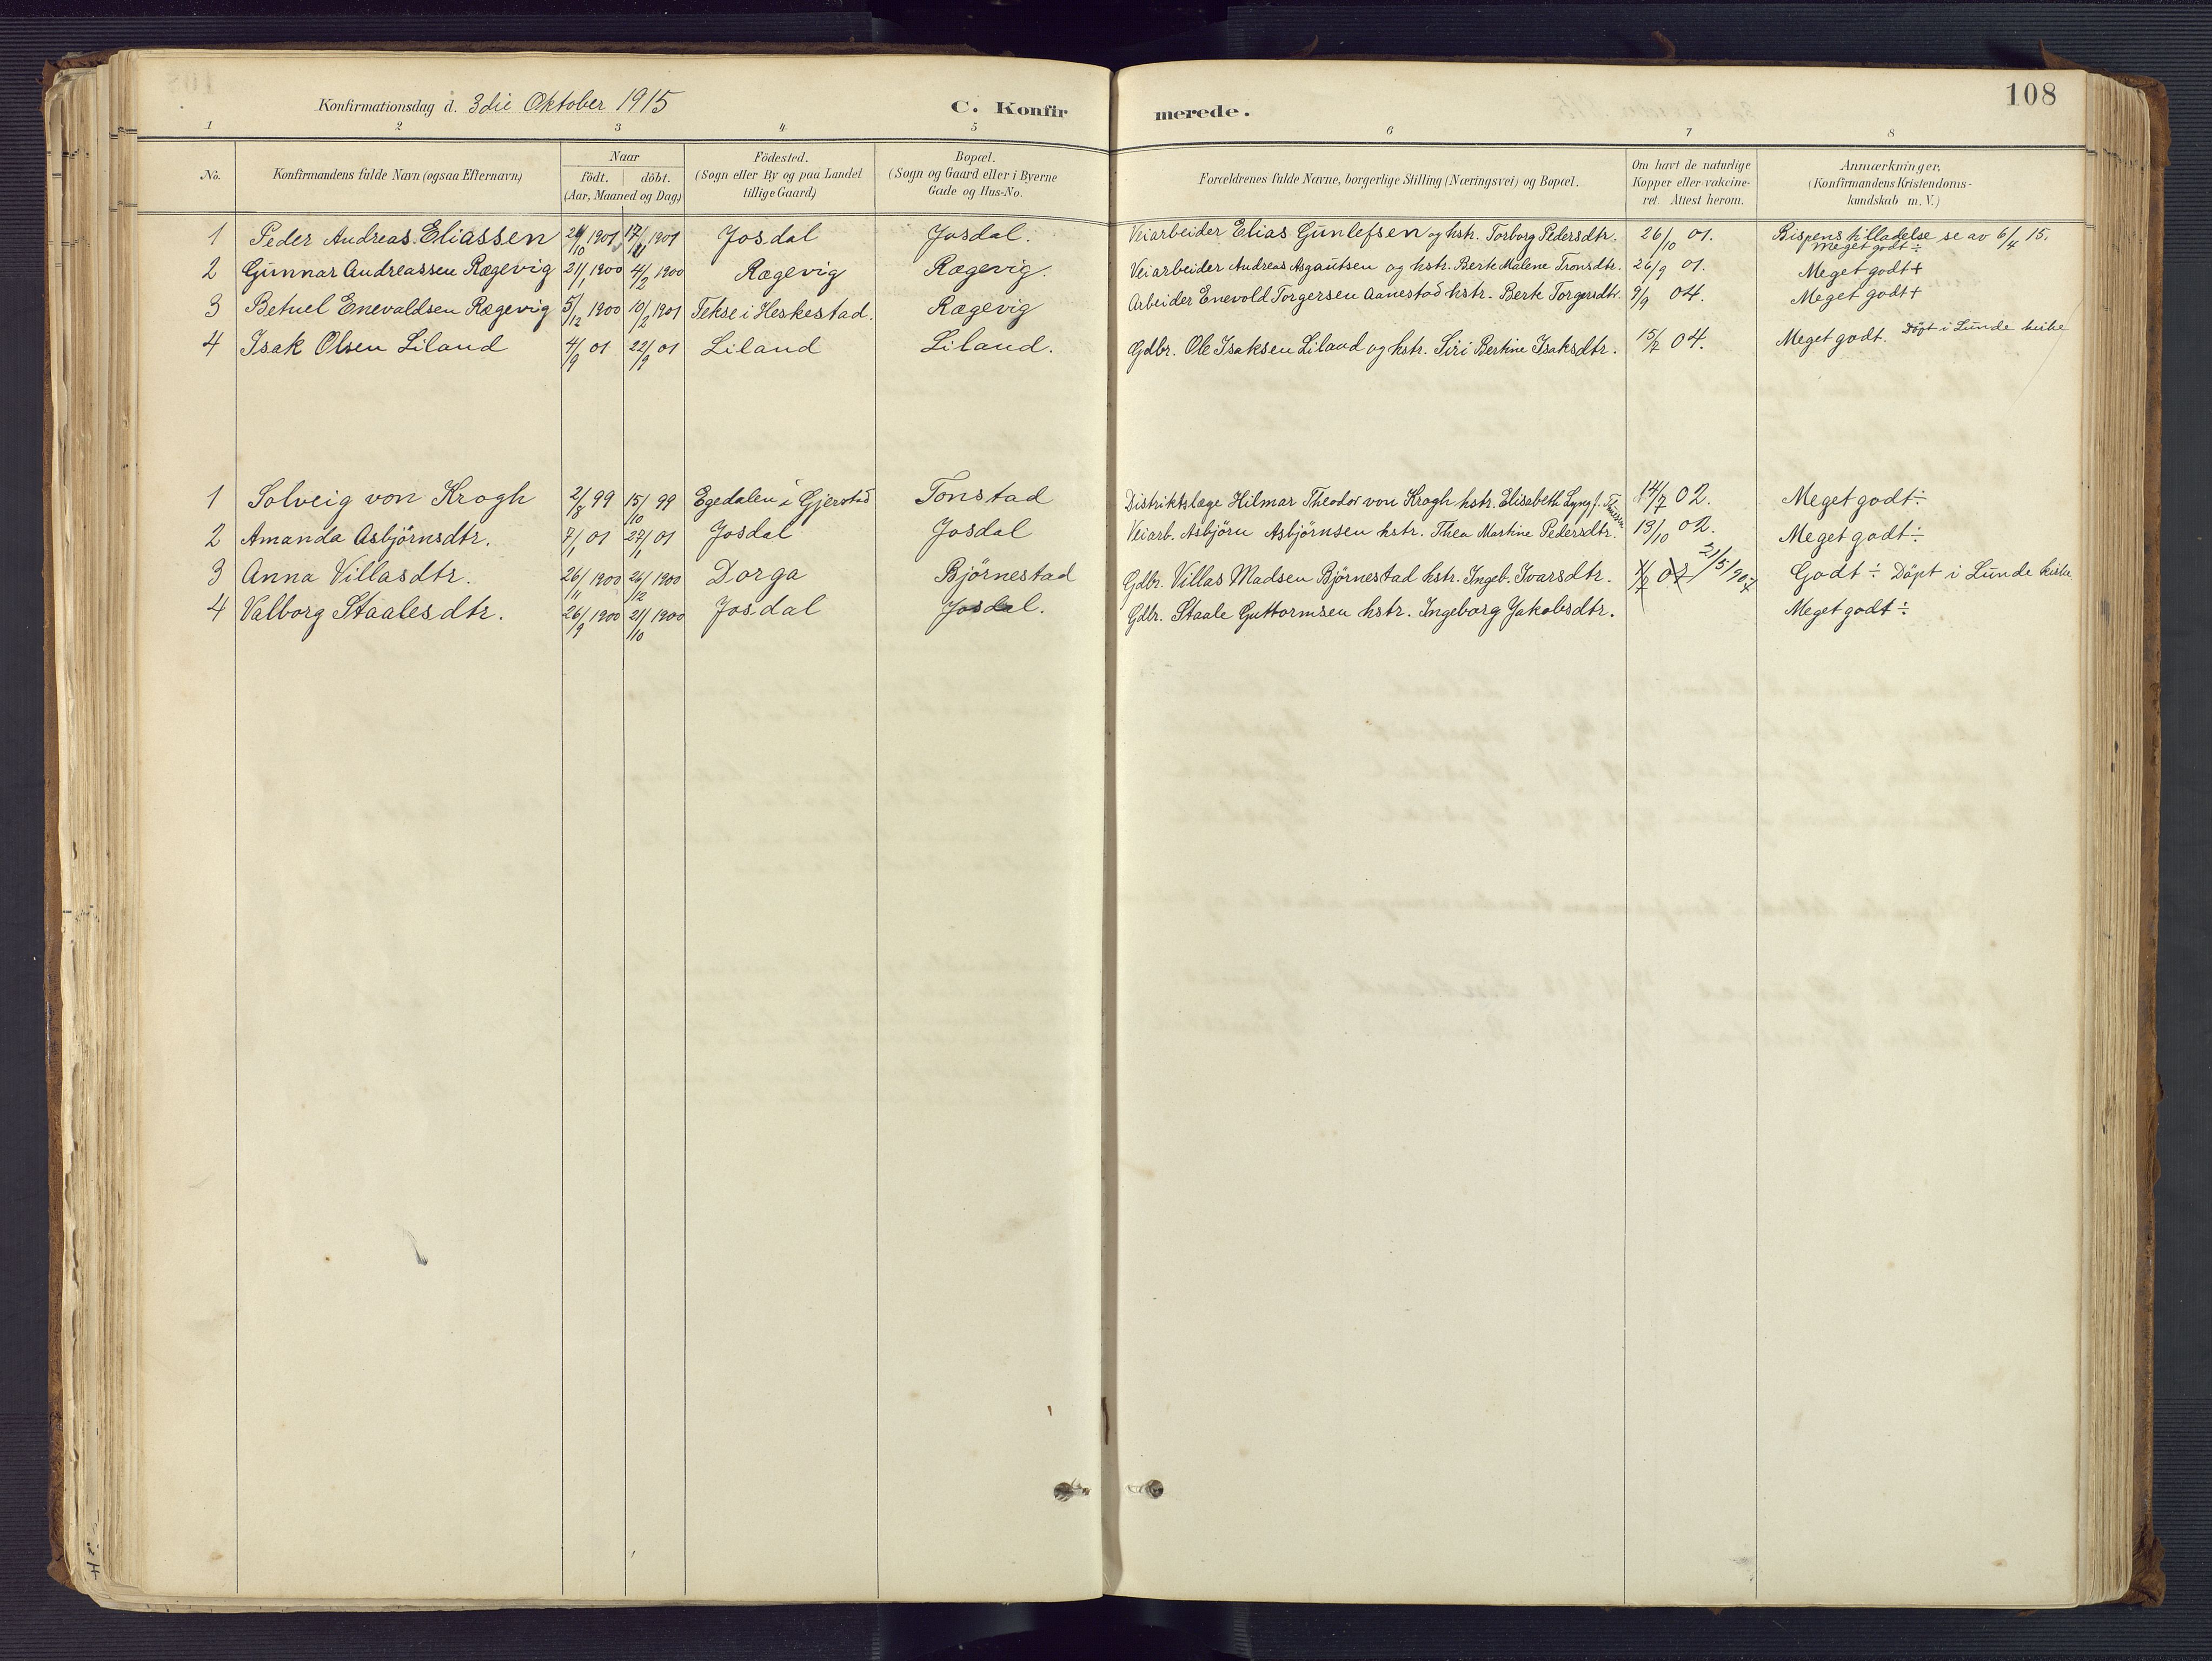 Konfirmationsdag d. 3die Oktober 1915 C. Konfir merede. 108
1 2 3 4 5 6 7 8
No. Konfirmandens fulde Navn (ogsaa Efternavn) Naar födt. döbt. (Aar, Maaned og Dag) Födested. (Sogn eller By og paa Landet tillige Gaard) Bopæl. (Sogn og Gaard eller i Byerne Gade og Hus-No. Forældrenes fulde Navne, borgerlige Stilling (Næringsvei) og Bopæl. Om havt de naturlige Kopper eller vakcineret. Attest herom. Anmærkninger, (Konfirmandens Kristendomskundskab m. V.)
1 Peder Andreas Eliassen /10 1901 17/ 1901 Josdal Josdal. Veiarbeider Elias Gunlefsen og hstr. Torborg Pedersdtr. 26/10 01. Bispens tilladelse se av 6/4 15. Meget godt ÷
2 Gunnar Andreassen Rægevig 21/1 1900 4/2 1900 Rægevig Rægevig. Veiarbeider Andreas Asgautsen og hstr. Berte Malene Tronsdtr. 26/9 01. Meget godt +
3 Betuel Enevaldsen Rægevig 5/12 1900 10/2 1901 Tekse i Heskestad. Rægevig Arbeider Enevold Torgersen Aanestad hstr. Berte Torgersdtr. 9/9 04. Meget godt +
4 Isak Olsen Liland 4/9 01 22/9 01 Liland Liland. Gdbr. Ole Isaksen Liland og hstr. Siri Bertine Isaksdtr. 15/7 04. Meget godt. Döpt i Lunde kirke
1 Solveig von Krogh 2/8 99 15/10 99 Egedalen i Gjerstad Tonstad Distriktslæge Hilmar Theodor von Krogh hstr. Elisabeth Lyng f. 14/7 02. Meget godt ÷
2 Amanda Asbjörnsdtr. 7/1 01 27/1 01 Josdal Josdal Veiarb. Asbjörn Asbjörnsen hstr. Thea Martine Pedersdtr. 13/10 02. Meget godt ÷
3 Anna Villasdtr. 26/11 1900 26/12 1900 Dorga Björnestad Gdbr. Villas Madsen Björnestad hstr. Ingeb. Ivarsdtr. 21/5 1907 Godt ÷ Döpt i Lunde kirke
4 Valborg Staalesdtr. 26/9 1900 21/10 1900 Josdal Josdal. Gdbr. Staale Guttormsen hstr. Ingeborg Jakobsdtr. Meget godt ÷